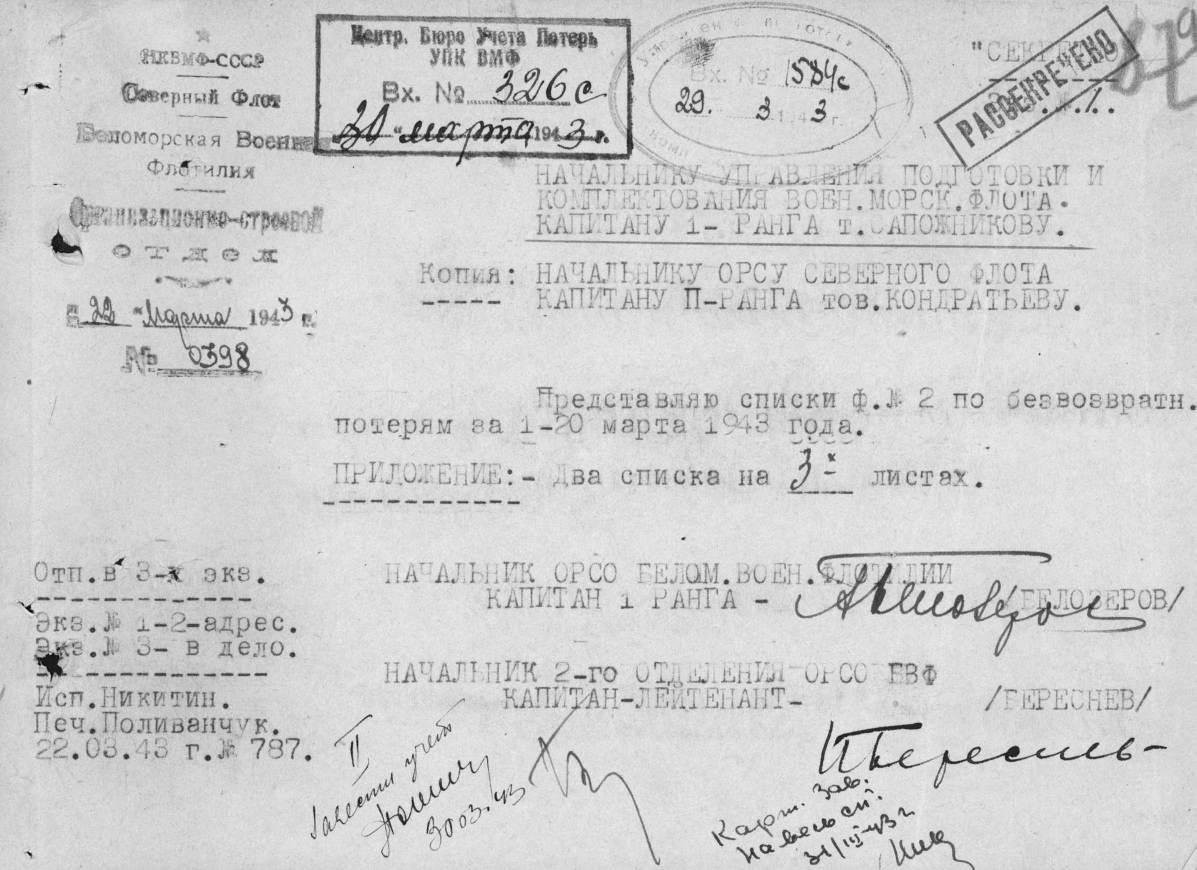 НКВМФ-СССР
Северный Флот
Беломорская Военная
Флотилия
Организационно-строевой
отдел
"22" Марта 1943 г.
№ 0398
Центр. Бюро Учета Потерь
УПК ВМФ
Вх. № 326с
30 "марта 1943 г.
Вх. № 1584с
29. 3. 1943 г.
"СЕКРЕТНО"
РАССЕКРЕЧЕНО
НАЧАЛЬНИКУ УПРАВЛЕНИЯ ПОДГОТОВКИ И
КОМПЛЕКТОВАНИЯ ВОЕН.МОРСК.ФЛОТА.
КАПИТАНУ 1- РАНГА т.САПОЖНИКОВУ.
Копия: НАЧАЛЬНИКУ ОРСУ СЕВЕРНОГО ФЛОТА
КАПИТАНУ П-РАНГА тов.КОНДРАТЬЕВУ.
Представляю списки ф.№ 2 по безвозвратн.
потерям за 1-20 марта 1943 года.
ПРИЛОЖЕНИЕ:- Два списка на 3х листах.
НАЧАЛЬНИК ОРСО БЕЛОМ.ВОЕН.ФЛОТИЛИИ
КАПИТАН 1 РАНГА - /БЕЛОЗЕРОВ/
НАЧАЛЬНИК 2-го ОТДЕЛЕНИЯ ОРСО БВФ
КАПИТАН-ЛЕЙТЕНАНТ- /БЕРЕСНЕВ/
Отп.в 3-х экз.
Экз.№ 1-2-адрес.
Экз.№ 3- в дело.
Исп.Никитин.
Печ.Поливанчук.
22.03.43 г.№ 787.
II
учет
30 03.43
Карт. зав.
31/III-43 г